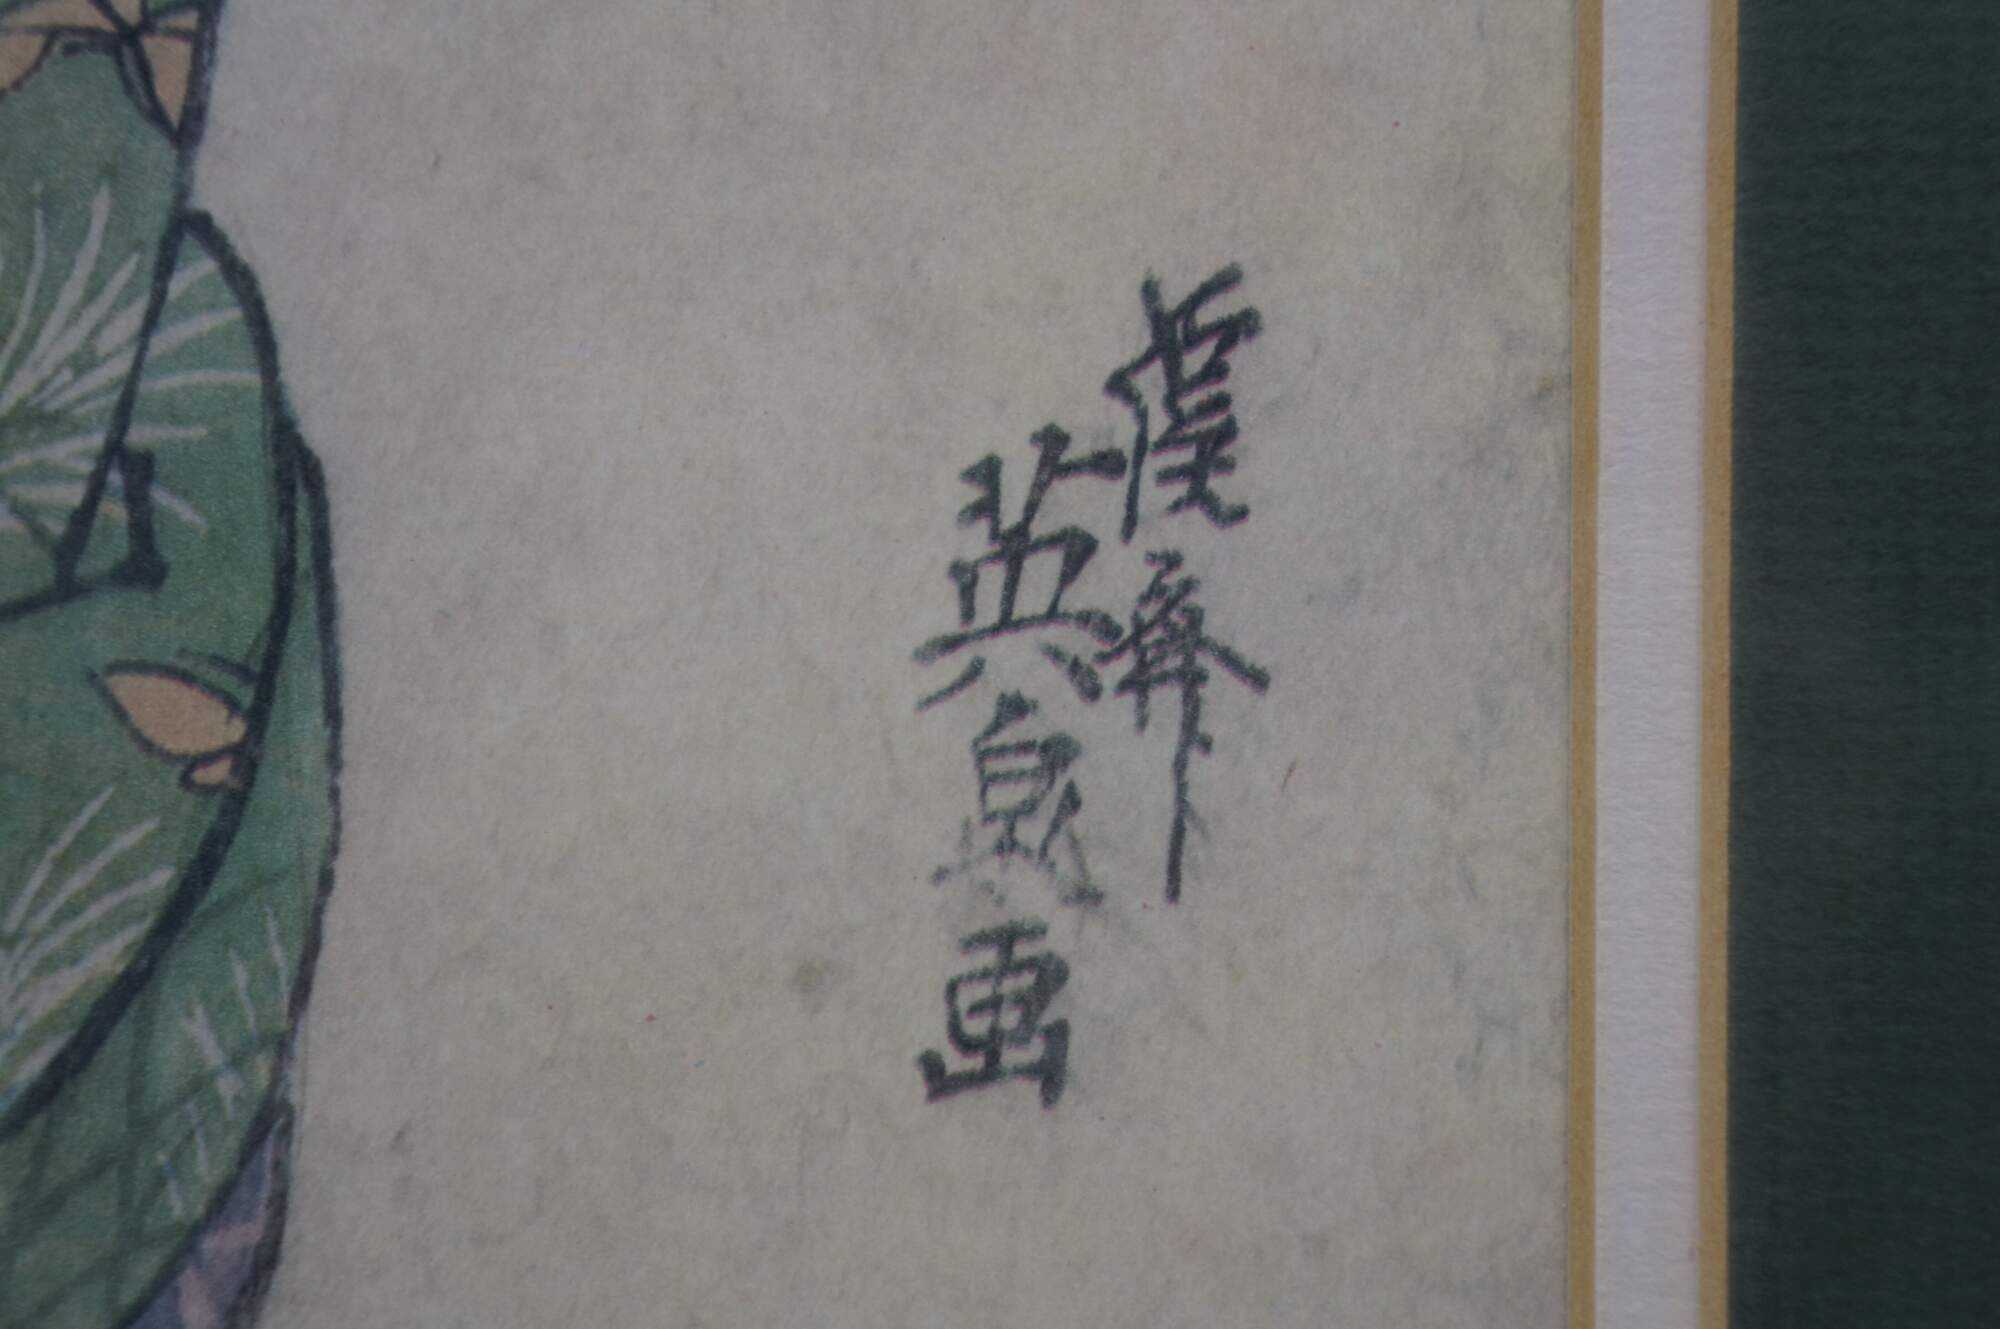 溪斎
英泉画